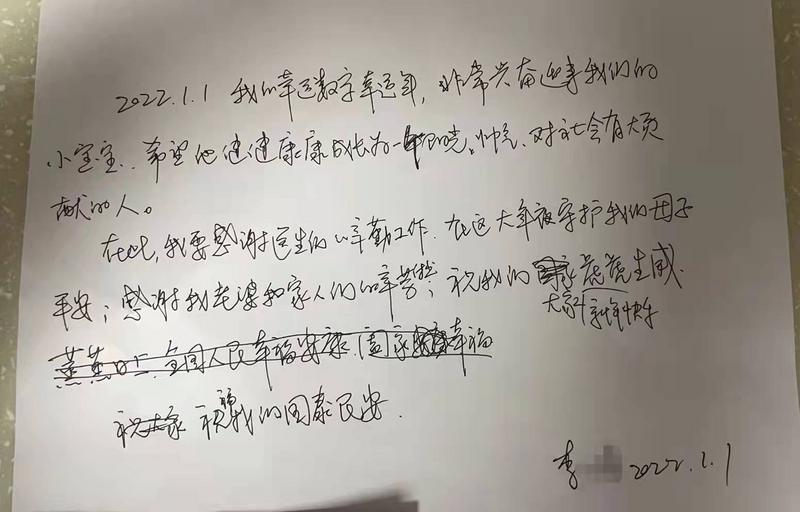 2022.1.1 我的幸运数字幸运年,非常兴奋迎来我们的
小宝宝.希望他健健康康成长为一 帅气、对社会有大贡
献的人。
在此,我要感谢医生的辛勤工作.在这大年夜守护我们母子
平安;感谢我老婆和家人们的辛苦;祝我们家虎虎生威.
大家新年快乐
蒸蒸日上.全国人民幸福安康.国家 幸福
祝大家 祝我们国泰民安.
李 2022.1.1